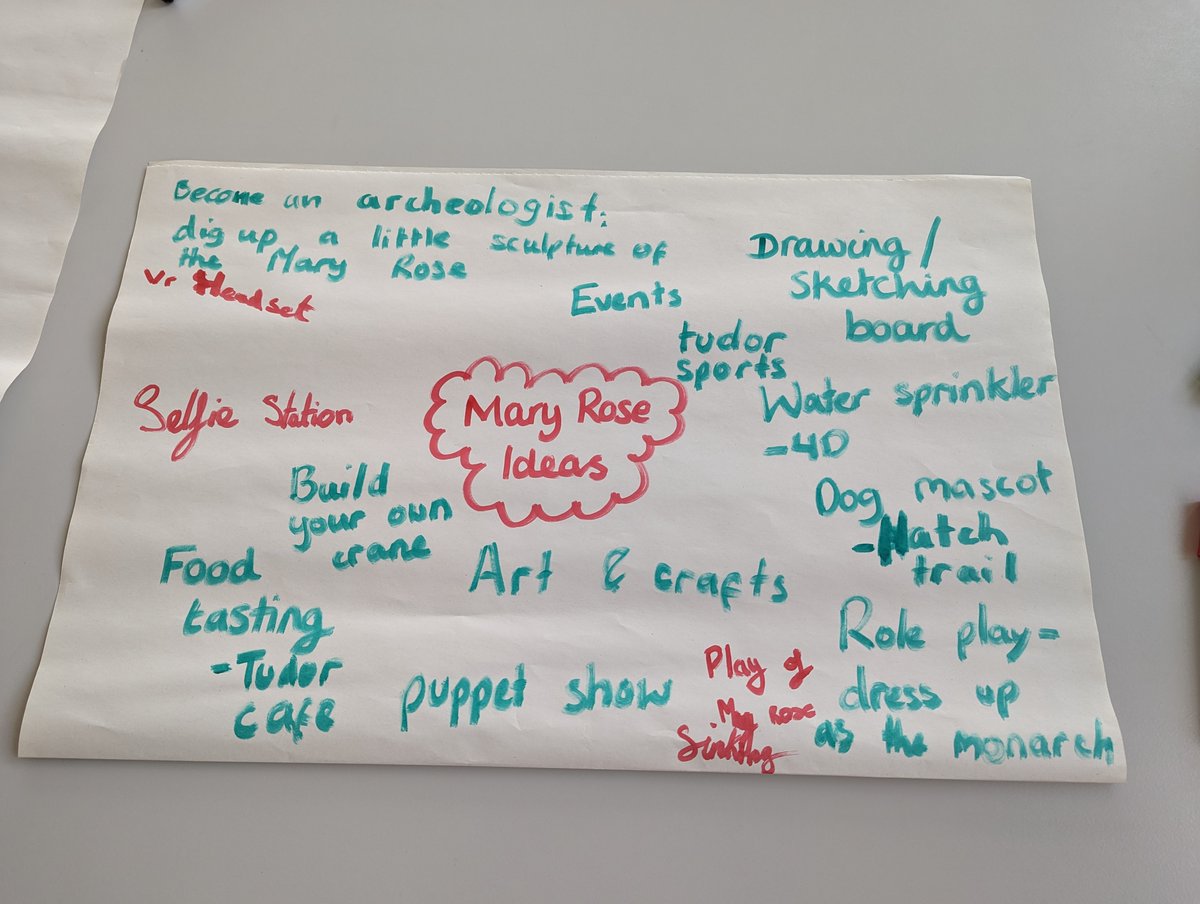 Become an archeologist:
dig up a little sculpture of
the Mary Rose
Vr Headset
Events
Drawing /
Sketching
board
tudor
sports
Selfie Station
Mary Rose
Ideas
Water sprinkler
-4D
Build
your own
crane
Dog mascot
-Hatch
trail
Food
tasting
-Tudor
cafe
Art & crafts
puppet show
Play of
Mary Rose
Sinking
Role play-
dress up
as the monarch